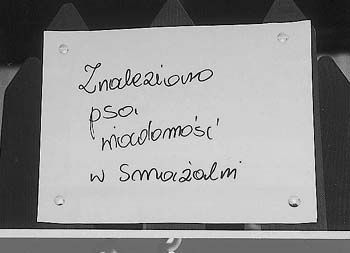 Znaleziono
psa.
wiadomość
w smażalni